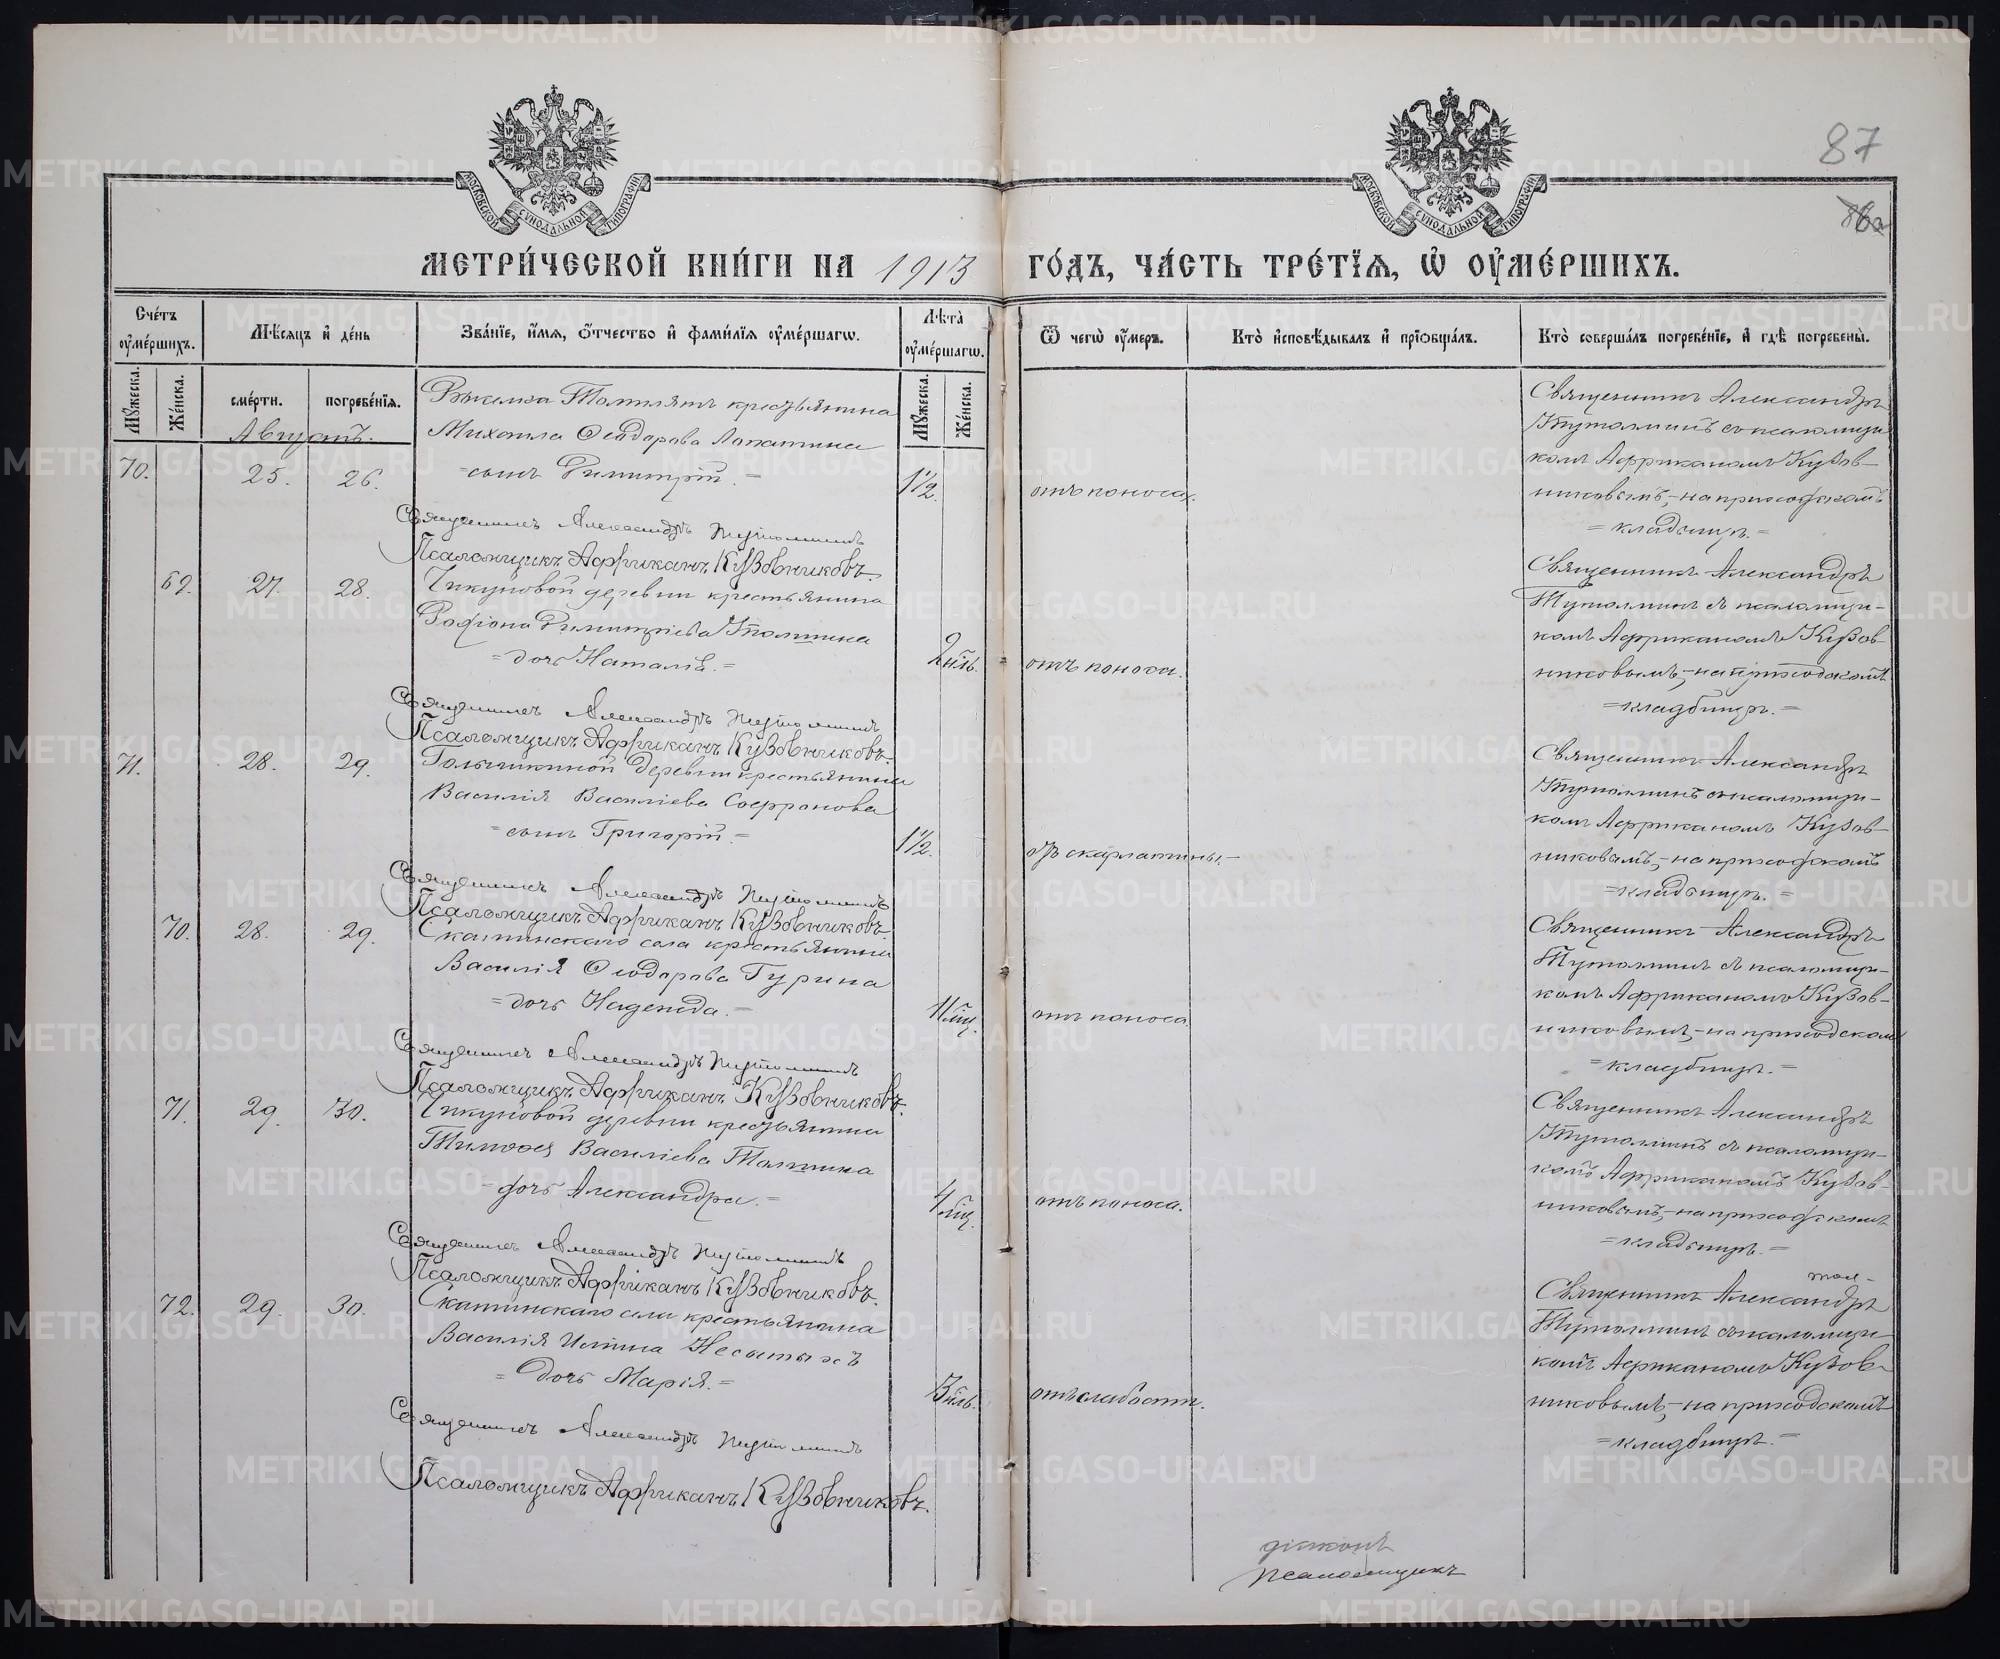 87
86а
МОСКОВСКОЙ СѴНОДАЛЬНОЙ ТИПОГРАФІИ
МОСКОВСКОЙ СѴНОДАЛЬНОЙ ТИПОГРАФІИ
МЕТРИ́ЧЕСКОЙ КНИ́ГИ НА 1913 ГО́ДЪ, ЧА́СТЬ ТРЕ́ТЇѦ, Ѡ ОУМЕ́РШИХЪ.
Сче́тъ оумéршихъ.
Мѣ́сяцъ и де́нь
Зва́нїе, и́мя, о́тчество и фами́лїя оумéршагѡ.
Лѣ́та оумéршагѡ.
Ѿ чегѡ̀ оу́меръ.
Кто̀ исповѣ́дывалъ и прїѡбща́лъ.
Кто̀ соверша́лъ погребе́нїе, и гдѣ̀ погребены̀.
Мꙋ́жеска.
Же́нска.
сме́рти.
погребе́нїя.
Мꙋ́жеска.
Же́нска.
Августъ.
70.
25.
26.
крестьянина
Михаила Ѳеодорова Лопатина
=сынъ Димитрій.=
1½.
отъ поноса.
Священникъ Александръ
Тутолминъ съ псаломщи-
комъ Африканомъ Кузов-
никовымъ,-на приходскомъ
=кладбищѣ.=
Священникъ Александръ Тутолминъ
Псаломщикъ Африканъ Кузовниковъ.
69.
27.
28.
Чикуновой деревни крестьянина
Димитріева
=дочь Наталія.=
2 н҃ль.
отъ поноса.
Священникъ Александръ
Тутолминъ съ псаломщи-
комъ Африканомъ Кузов-
никовымъ,-на приходскомъ
=кладбищѣ.=
Священникъ Александръ Тутолминъ
Псаломщикъ Африканъ Кузовниковъ.
71.
28.
29.
деревни крестьянина
Василія Василіева Софронова
=сынъ Григорій.=
1½.
отъ скарлатины.-
Священникъ Александръ
Тутолминъ съ псаломщи-
комъ Африканомъ Кузов-
никовымъ,-на приходскомъ
=кладбищѣ.=
Священникъ Александръ Тутолминъ
Псаломщикъ Африканъ Кузовниковъ.
70.
28.
29.
Скатинскаго села крестьянина
Василія Ѳеодорова Гурина
=дочь Надежда.=
11 мц.
отъ поноса.
Священникъ Александръ
Тутолминъ съ псаломщи-
комъ Африканомъ Кузов-
никовымъ,-на приходскомъ
=кладбищѣ.=
Священникъ Александръ Тутолминъ
Псаломщикъ Африканъ Кузовниковъ.
71.
29.
30.
Чикуновой деревни крестьянина
Тимоѳея Василіева
=дочь Александра.=
4 мц.
отъ поноса.
Священникъ Александръ
Тутолминъ съ псаломщи-
комъ Африканомъ Кузов-
никовымъ,-на приходскомъ
=кладбищѣ.=
Священникъ Александръ Тутолминъ
Псаломщикъ Африканъ Кузовниковъ.
72.
29.
30.
Скатинскаго села крестьянина
Василія Иліина Несытыхъ
=дочь Марія.=
3 н҃ль.
отъ слабости.
Священникъ Александръ
Тутолминъ съ псаломщи-
комъ Африканомъ Кузов-
никовымъ,-на приходскомъ
=кладбищѣ.=
Священникъ Александръ Тутолминъ
Псаломщикъ Африканъ Кузовниковъ.
діаконъ
псаломщикъ
METRIKI.GASO-URAL.RU